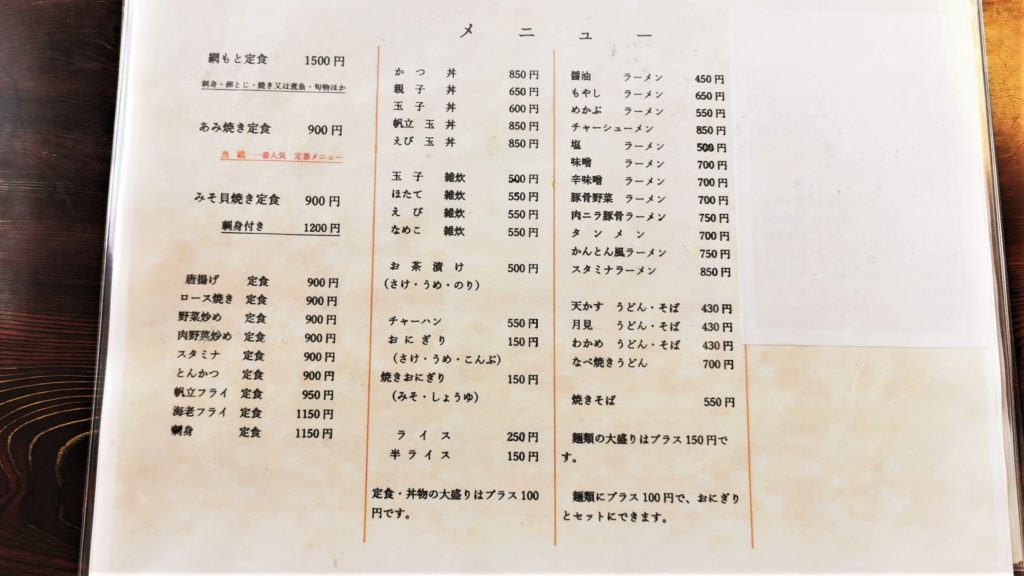 メニュー
網もと定食 1500円
刺身・卵とじ・焼き又は煮魚・旬物ほか
あみ焼き定食 900円
当店 一番人気 定番メニュー
みそ貝焼き定食 900円
刺身付き 1200円
唐揚げ 定食 900円
ロース焼き 定食 900円
野菜炒め 定食 900円
肉野菜炒め 定食 900円
スタミナ 定食 900円
とんかつ 定食 900円
帆立フライ 定食 950円
海老フライ 定食 1150円
刺身 定食 1150円
かつ丼 850円
親子丼 650円
玉子丼 600円
帆立玉丼 850円
えび玉丼 850円
玉子 雑炊 500円
ほたて 雑炊 550円
えび 雑炊 550円
なめこ 雑炊 550円
お茶漬け 500円
(さけ・うめ・のり)
チャーハン 550円
おにぎり 150円
(さけ・うめ・こんぶ)
焼きおにぎり 150円
(みそ・しょうゆ)
ライス 250円
半ライス 150円
定食・丼物の大盛りはプラス100
円です。
醤油 ラーメン 450円
もやし ラーメン 650円
めかぶ ラーメン 550円
チャーシューメン 850円
塩 ラーメン 500円
味噌 ラーメン 700円
辛味噌 ラーメン 700円
豚骨野菜 ラーメン 700円
肉ニラ豚骨ラーメン 750円
タンメン 700円
かんとん風ラーメン 750円
スタミナラーメン 850円
天かす うどん・そば 430円
月見 うどん・そば 430円
わかめ うどん・そば 430円
なべ焼きうどん 700円
焼きそば 550円
麺類の大盛りはプラス150円で
す。
麺類にプラス100円で、おにぎり
とセットにできます。